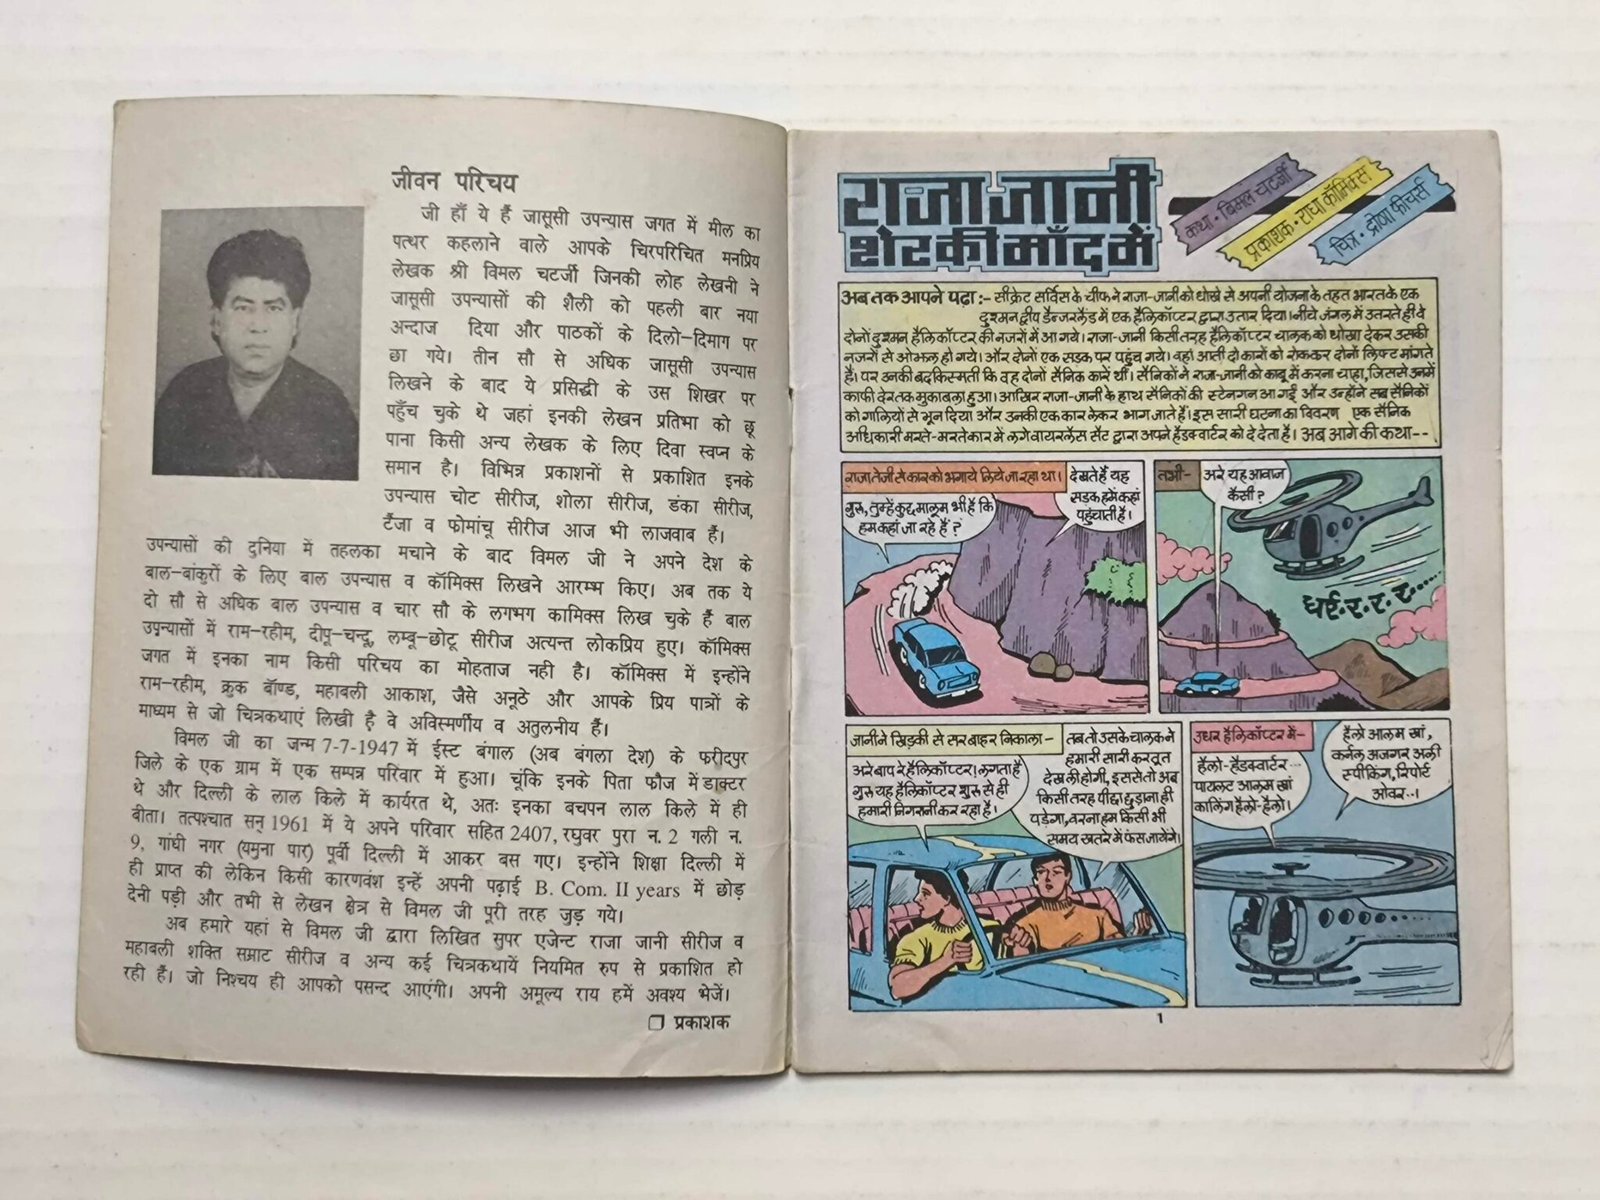 जीवन परिचय
जी हाँ ये हैं जासूसी उपन्यास जगत में मील का
पत्थर कहलाने वाले आपके चिरपरिचित मनप्रिय
लेखक श्री विमल चटर्जी जिनकी लोह लेखनी ने
जासूसी उपन्यासों की शैली को पहली बार नया
अन्दाज दिया और पाठकों के दिलो-दिमाग पर
छा गये। तीन सौ से अधिक जासूसी उपन्यास
लिखने के बाद ये प्रसिद्धी के उस शिखर पर
पहुँच चुके थे जहां इनकी लेखन प्रतिभा को छू
पाना किसी अन्य लेखक के लिए दिवा स्वप्न के
समान है। विभिन्न प्रकाशनों से प्रकाशित इनके
उपन्यास चोट सीरीज, शोला सीरीज, डंका सीरीज,
टैंजा व फोमांचू सीरीज आज भी लाजवाब हैं।
उपन्यासों की दुनिया में तहलका मचाने के बाद विमल जी ने अपने देश के
बाल-बांकुरों के लिए बाल उपन्यास व कॉमिक्स लिखने आरम्भ किए। अब तक ये
दो सौ से अधिक बाल उपन्यास व चार सौ के लगभग कामिक्स लिख चुके हैं बाल
उपन्यासों में राम-रहीम, दीपू-चन्दू, लम्बू-छोटू सीरीज अत्यन्त लोकप्रिय हुए। कॉमिक्स
जगत में इनका नाम किसी परिचय का मोहताज नही है। कॉमिक्स में इन्होंने
राम-रहीम, क्रुक बॉण्ड, महाबली आकाश, जैसे अनूठे और आपके प्रिय पात्रों के
माध्यम से जो चित्रकथाएं लिखी है वे अविस्मर्णीय व अतुलनीय हैं।
विमल जी का जन्म 7-7-1947 में ईस्ट बंगाल (अब बंगला देश) के फरीदपुर
जिले के एक ग्राम में एक सम्पन्न परिवार में हुआ। चूंकि इनके पिता फौज में डाक्टर
थे और दिल्ली के लाल किले में कार्यरत थे, अतः इनका बचपन लाल किले में ही
बीता। तत्पश्चात सन् 1961 में ये अपने परिवार सहित 2407, रघुवर पुरा न. 2 गली न.
9, गांधी नगर (यमुना पार) पूर्वी दिल्ली में आकर बस गए। इन्होने शिक्षा दिल्ली में
ही प्राप्त की लेकिन किसी कारणवंश इन्हें अपनी पढ़ाई B. Com. II years में छोड़
देनी पड़ी और तभी से लेखन क्षेत्र से विमल जी पूरी तरह जुड़ गये।
अब हमारे यहां से विमल जी द्वारा लिखित सुपर एजेन्ट राजा जानी सीरीज व
महाबली शक्ति सम्राट सीरीज व अन्य कई चित्रकथायें नियमित रुप से प्रकाशित हो
रही हैं। जो निश्चय ही आपको पसन्द आएंगी। अपनी अमूल्य राय हमें अवश्य भेजें।
❒ प्रकाशक
राजा जानी
शेर की माँद में
कथा · बिमल चटर्जी
प्रकाशक · राधा कॉमिक्स
चित्र · द्रोणा फीचर्स
अब तक आपने पढ़ा :- सीक्रेट सर्विस के चीफ ने राजा-जानी को धोखे से अपनी योजना के तहत भारत के एक
दुश्मन द्वीप डैन्जरलैंड में एक हैलिकॉप्टर द्वारा उतार दिया। नीचे जंगल में उतरते ही वे
दोनों दुश्मन हैलिकॉप्टर की नजरों में आ गये। राजा-जानी किसी तरह हैलिकॉप्टर चालक को धोखा देकर उसकी
नजरों से ओझल हो गये। और दोनों एक सड़क पर पहुंच गये। वहां आती दो कारों को रोककर दोनों लिफ्ट मांगते
हैं। पर उनकी बदकिस्मती कि वह दोनों सैनिक कारें थीं। सैनिकों ने राजा-जानी को काबू में करना चाहा, जिससे उनमें
काफी देर तक मुकाबला हुआ। आखिर राजा-जानी के हाथ सैनिकों की स्टेनगन आ गई और उन्होंने सब सैनिकों
को गोलियों से भून दिया और उनकी एक कार लेकर भाग जाते हैं। इस सारी घटना का विवरण एक सैनिक
अधिकारी मरते-मरते कार में लगे वायरलैस सैट द्वारा अपने हैडक्वार्टर को दे देता है। अब आगे की कथा--
राजा तेजी से कार को भगाये लिये जा रहा था।
गुरु, तुम्हें कुछ मालूम भी है कि
हम कहां जा रहे हैं?
देखते हैं यह
सड़क हमें कहां
पहुंचाती है।
तभी-
अरे यह आवाज
कैसी?
घर्र·र·र·र·र....
जानी ने खिड़की से सर बाहर निकाला-
अरे बाप रे हैलिकॉप्टर! लगता है
गुरु यह हैलिकॉप्टर शुरू से ही
हमारी निगरानी कर रहा है।
तब तो उसके चालक ने
हमारी सारी करतूत
देख ली होगी, इससे तो अब
किसी तरह पीछा छुड़ाना ही
पड़ेगा, वरना हम किसी भी
समय खतरे में फंस जायेंगे।
उधर हैलिकॉप्टर में-
हैलो-हैडक्वार्टर...
पायलट आलम खां
कालिंग हैलो-हैलो।
हैलो आलम खां,
कर्नल अजगर अली
स्पीकिंग, रिपोर्ट
ओवर..।
1